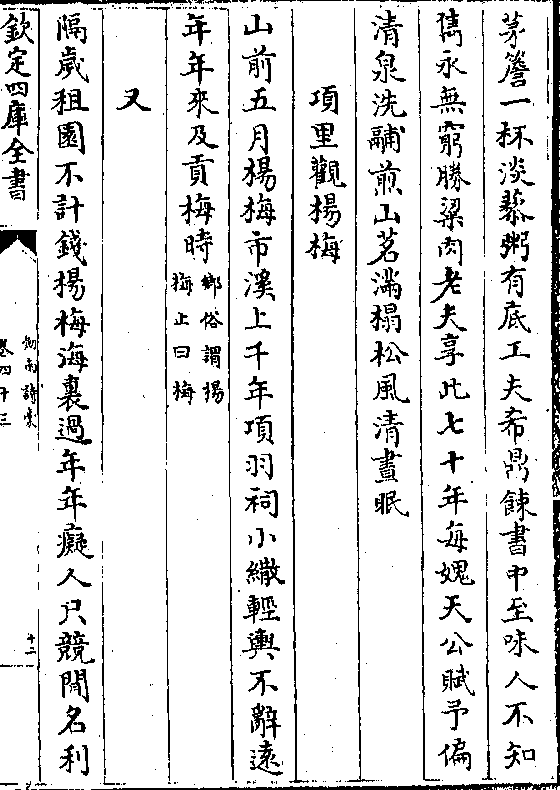 茅簷一杯淡藜粥有底工夫希鼎餗書中至味人不知
雋永無窮勝粱肉老夫享此七十年每媿天公賦予偏
清泉洗鬴煎山茗滿榻松風清晝眠
項里觀楊梅
山前五月楊梅市溪上千年項羽祠小繖輕輿不辭逺
年年來及貢梅時鄉俗謂揚
梅止曰梅
又
隔歲租園不計錢楊梅海裏過年年癡人只競閒名利
欽定四庫全書
劍南詩稾
卷四十三
十二